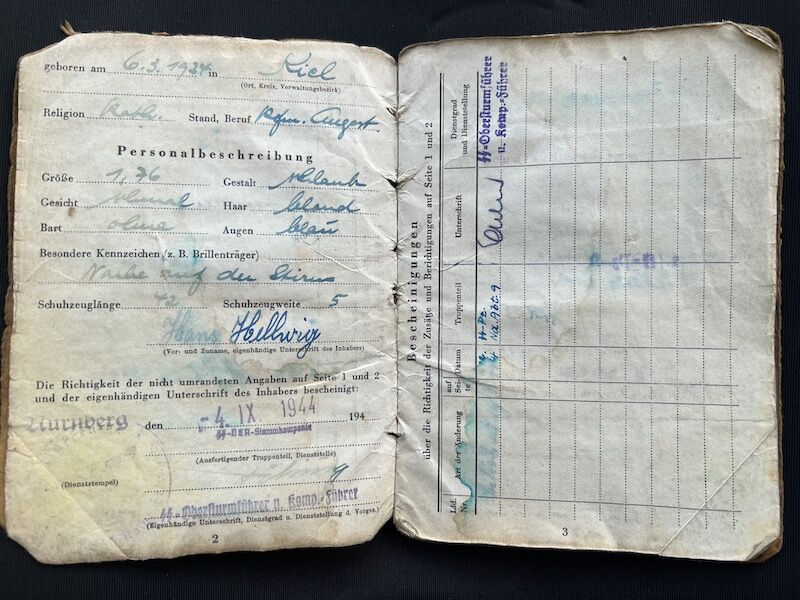 geboren am 6.3.1924 in Kiel
(Ort, Kreis, Verwaltungsbezirk)
Religion kath. Stand, Beruf Kfm. Angest.
Personalbeschreibung
Größe 1,76 Gestalt schlank
Gesicht schmal Haar blond
Bart ohne Augen blau
Besondere Kennzeichen (z. B. Brillenträger)
Narbe auf der Stirn
Schuhzeuglänge 42 Schuhzeugweite 5
Hans Hellwig
(Vor- und Zuname, eigenhändige Unterschrift des Inhabers)
Die Richtigkeit der nicht umrandeten Angaben auf Seite 1 und 2
und der eigenhändigen Unterschrift des Inhabers bescheinigt:
Nürnberg den -4. IX 1944 194
SS-DER-Stammkompanie
(Ausfertigender Truppenteil, Dienststelle)
(Dienststempel)
SS-Obersturmführer u. Komp.-Führer
(Eigenhändige Unterschrift, Dienstgrad u. Dienststellung d. Vorges.)
2
Bescheinigungen
über die Richtigkeit der Zusätze und Berichtigungen auf Seite 1 und 2
Lfd. Nr. Art der Änderung auf Seite Datum Truppenteil Unterschrift Dienstgrad und Dienststellung
SS-Pz.
Na.Abt. 9
SS-Obersturmführer
u. Komp.-Führer
3